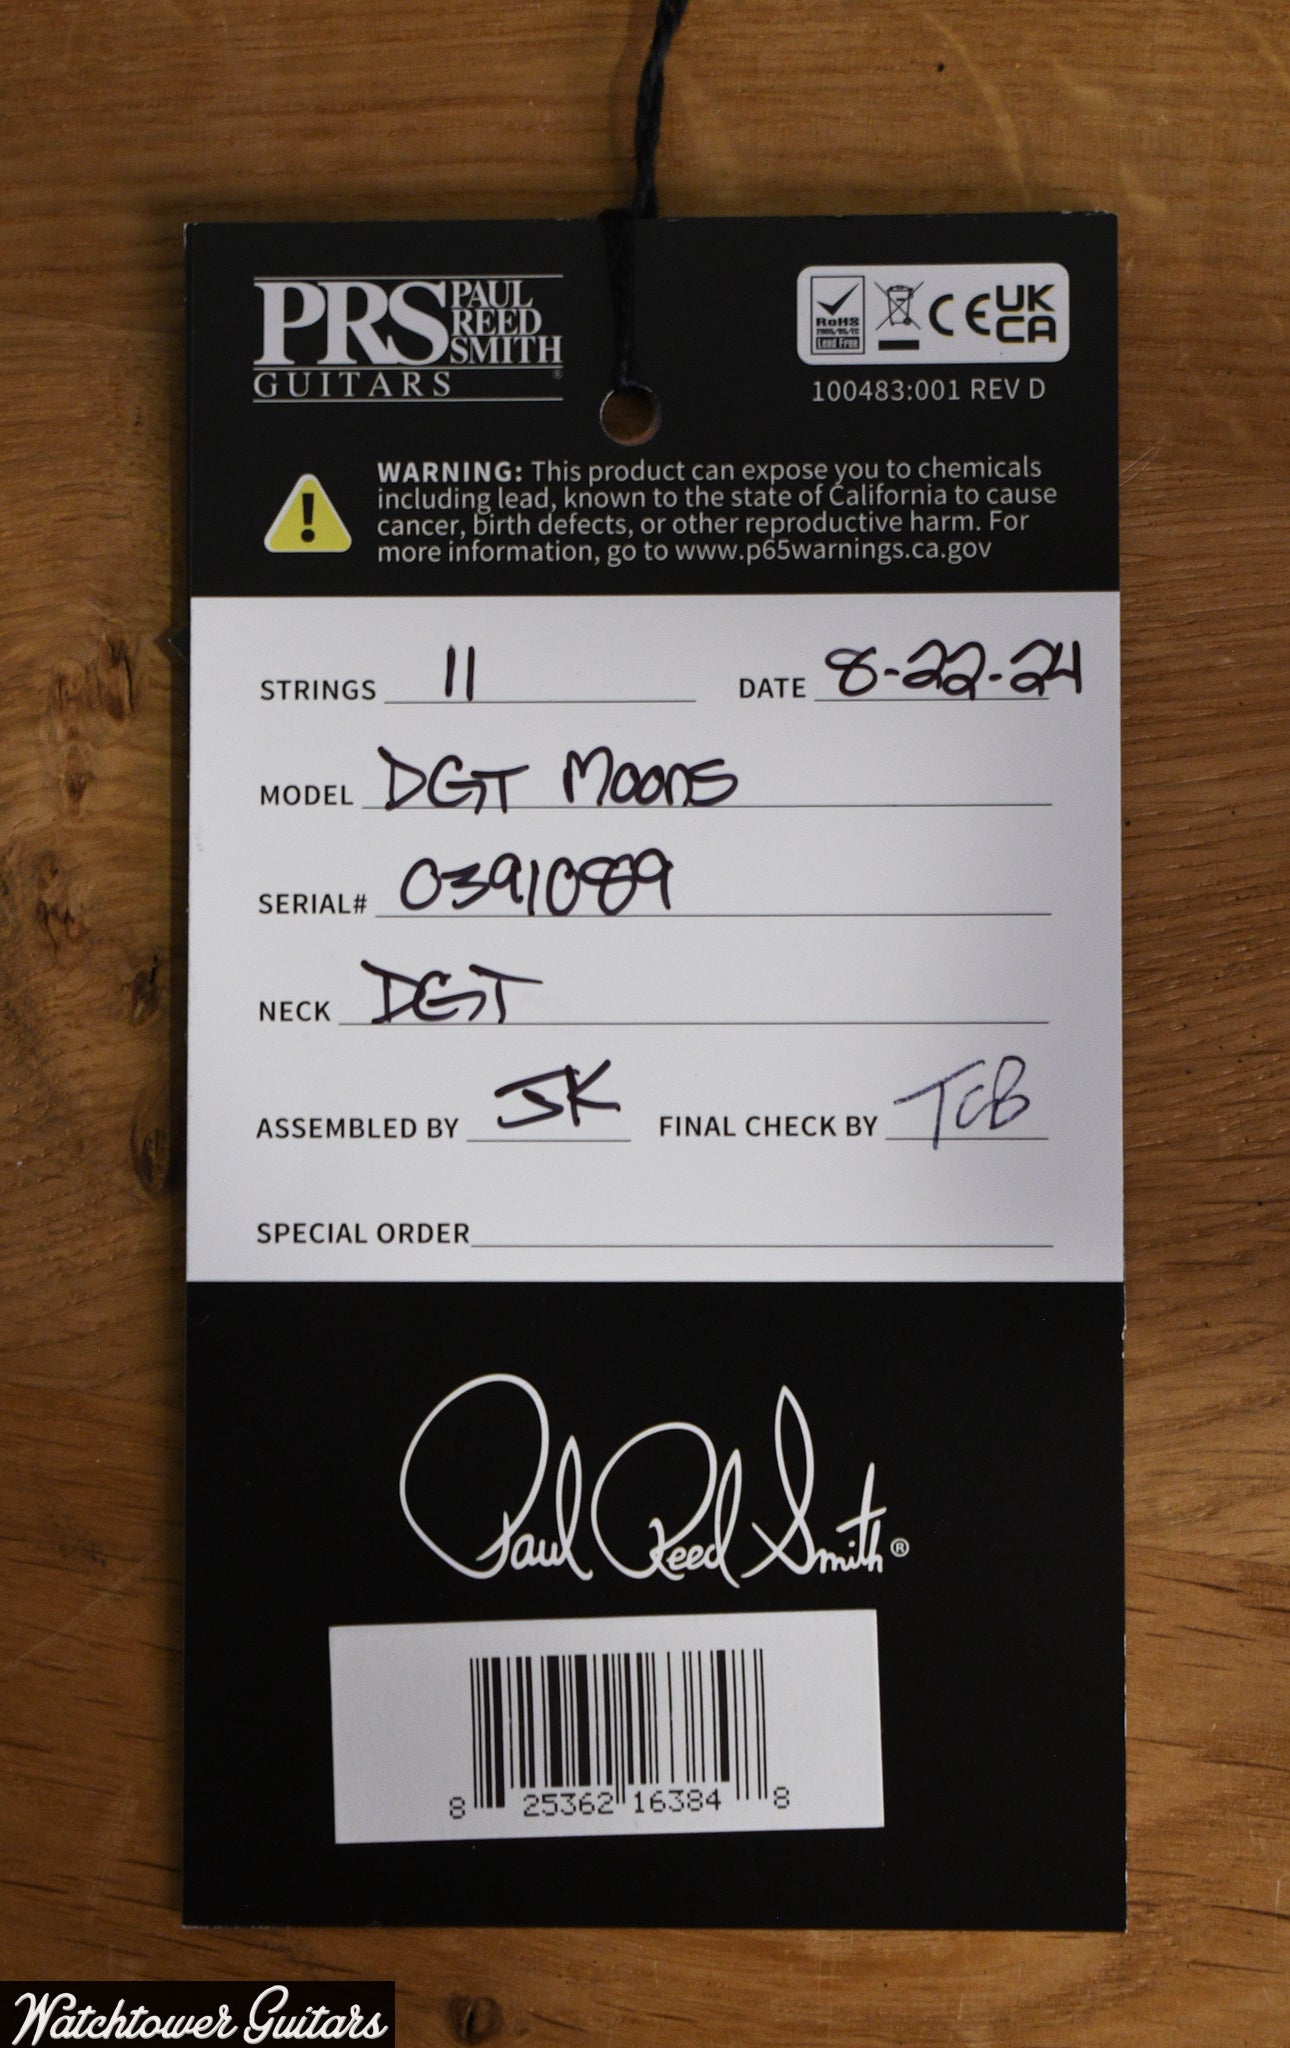 PRS PAUL REED SMITH
GUITARS ®
RoHS
2005/95/EC
Lead Free
CE UKCA
100483:001 REV D
WARNING: This product can expose you to chemicals
including lead, known to the state of California to cause
cancer, birth defects, or other reproductive harm. For
more information, go to www.p65warnings.ca.gov
STRINGS 11 DATE 8-22-24
MODEL DGT Moons
SERIAL# 0391089
NECK DGT
ASSEMBLED BY JK FINAL CHECK BY TCB
SPECIAL ORDER
Paul Reed Smith®
8 25362 16384 8
Watchtower Guitars